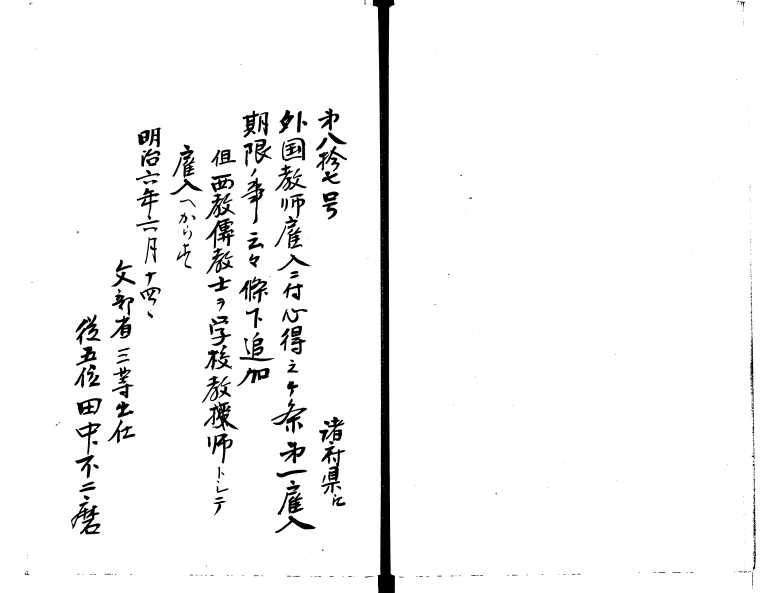 第八拾七号
諸府県ヘ
外国教師雇入ニ付心得之条第一雇入
期限ノ事云々條下追加
但西教傳教士ヲ学校教師トシテ
雇入ヘからす
明治六年六月十四日
文部省三等出仕
従五位田中不二麿